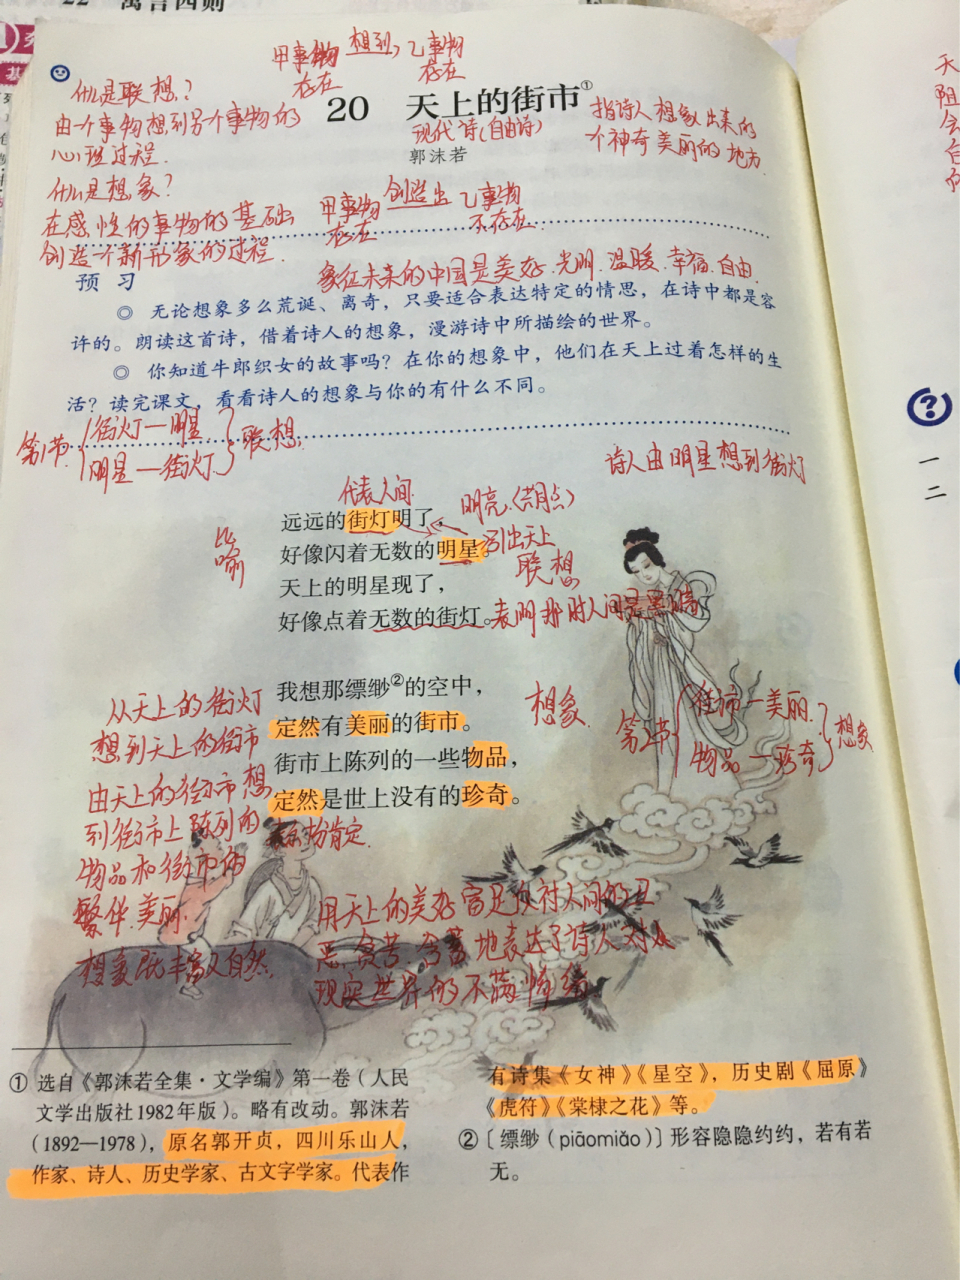 22 寓言四则
甲事物 想到 乙事物
存在 存在
什么是联想？
由一个事物想到另一个事物的
心理过程.
20 天上的街市①
现代诗(自由诗)
郭沫若
指诗人想象出来的
个神奇美丽的地方.
什么是想象？
在感性的事物的基础
创造一个新形象的过程.
甲事物 创造出 乙事物
存在 不存在.
象征未来的中国是美好.光明.温暖.幸福.自由.
预 习
◎ 无论想象多么荒诞、离奇，只要适合表达特定的情思，在诗中都是容
许的。朗读这首诗，借着诗人的想象，漫游诗中所描绘的世界。
◎ 你知道牛郎织女的故事吗？在你的想象中，他们在天上过着怎样的生
活？读完课文，看看诗人的想象与你的有什么不同。
第1节 街灯—明星
明星—街灯 联想.
诗人由明星想到街灯
代表人间
明亮.(共同点)
远远的街灯明了，
好像闪着无数的明星。
引出天上
联想
比喻
天上的明星现了，
好像点着无数的街灯。
表明那时人间是黑暗
我想那缥缈②的空中，
定然有美丽的街市。
街市上陈列的一些物品，
定然是世上没有的珍奇。
表示肯定.
想象.
第2节 街市—美丽.
物品—珍奇 想象
从天上的街灯
想到天上的街市
由天上的街市想
到街市上陈列的
物品和街市的
繁华.美丽.
想象既丰富又自然.
用天上的美好富足反衬人间的丑
恶.贫苦.含蓄地表达了诗人对
现实世界的不满情绪
① 选自《郭沫若全集·文学编》第一卷（人民
文学出版社1982年版）。略有改动。郭沫若
（1892—1978），原名郭开贞，四川乐山人，
作家、诗人、历史学家、古文字学家。代表作
有诗集《女神》《星空》，历史剧《屈原》
《虎符》《棠棣之花》等。
②〔缥缈（piāomiǎo）〕形容隐隐约约，若有若
无。
?
一
二